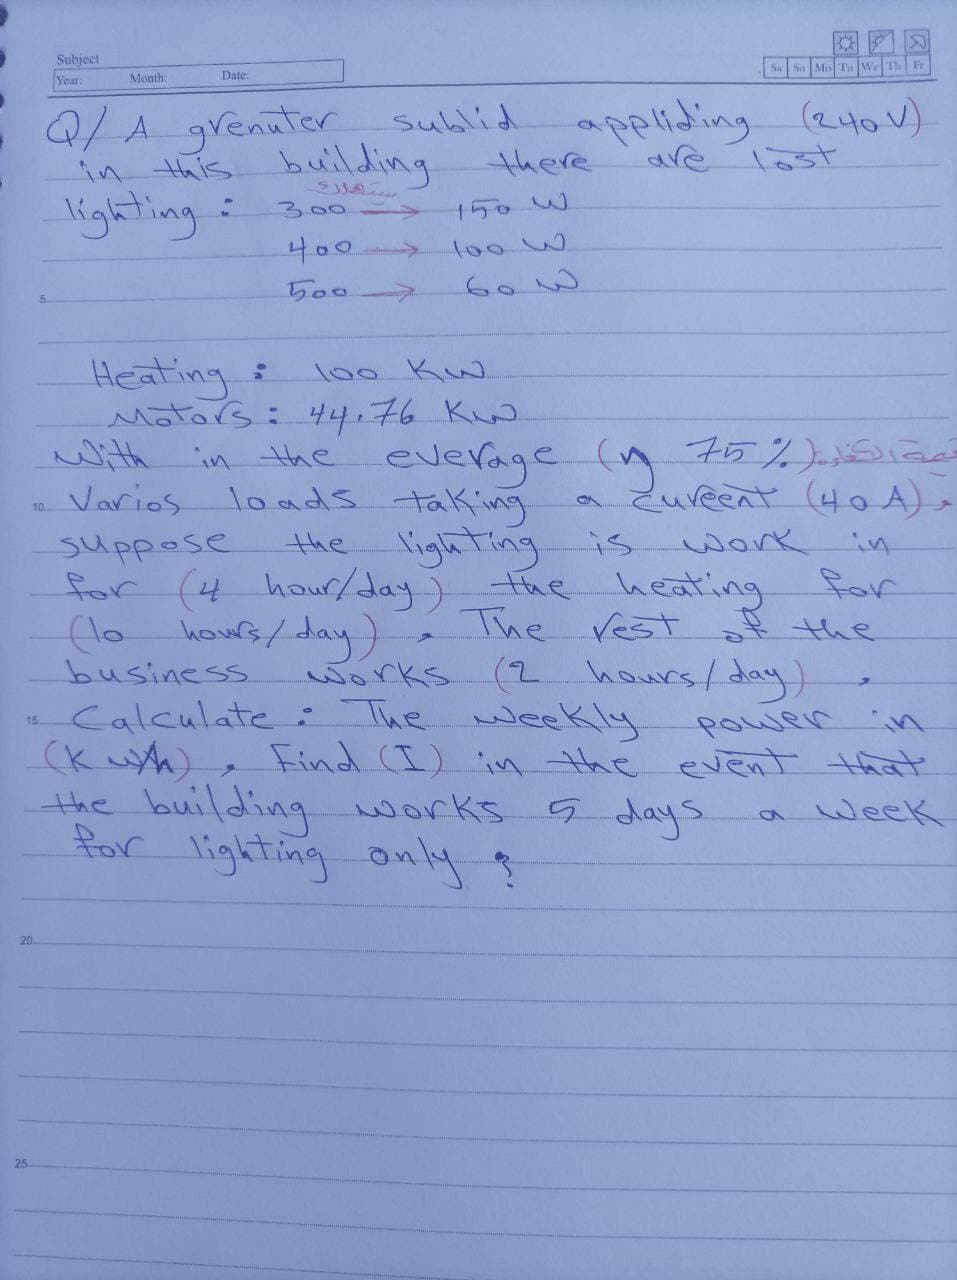 Subject
Year: Month: Date:
Sa Su Mo Tu We Th Fr
Q/ A grenuter sublid appliding (240V)
in this building there are lost
lighting : 300 → 150 W
400 → 100 W
500 → 60 W
5
Heating : 100 Kw
Motors : 44.76 Kw
With in the everage (η 75%)
10 Varios loads taking a cureent (40A).
suppose the lighting is work in
for (4 hour/day) the heating for
(10 hours/day). The rest of the
business works (2 hours/day).
15 Calculate : The weekly power in
(Kw/h), Find (I) in the event that
the building works 5 days a week
for lighting only ?
20
25